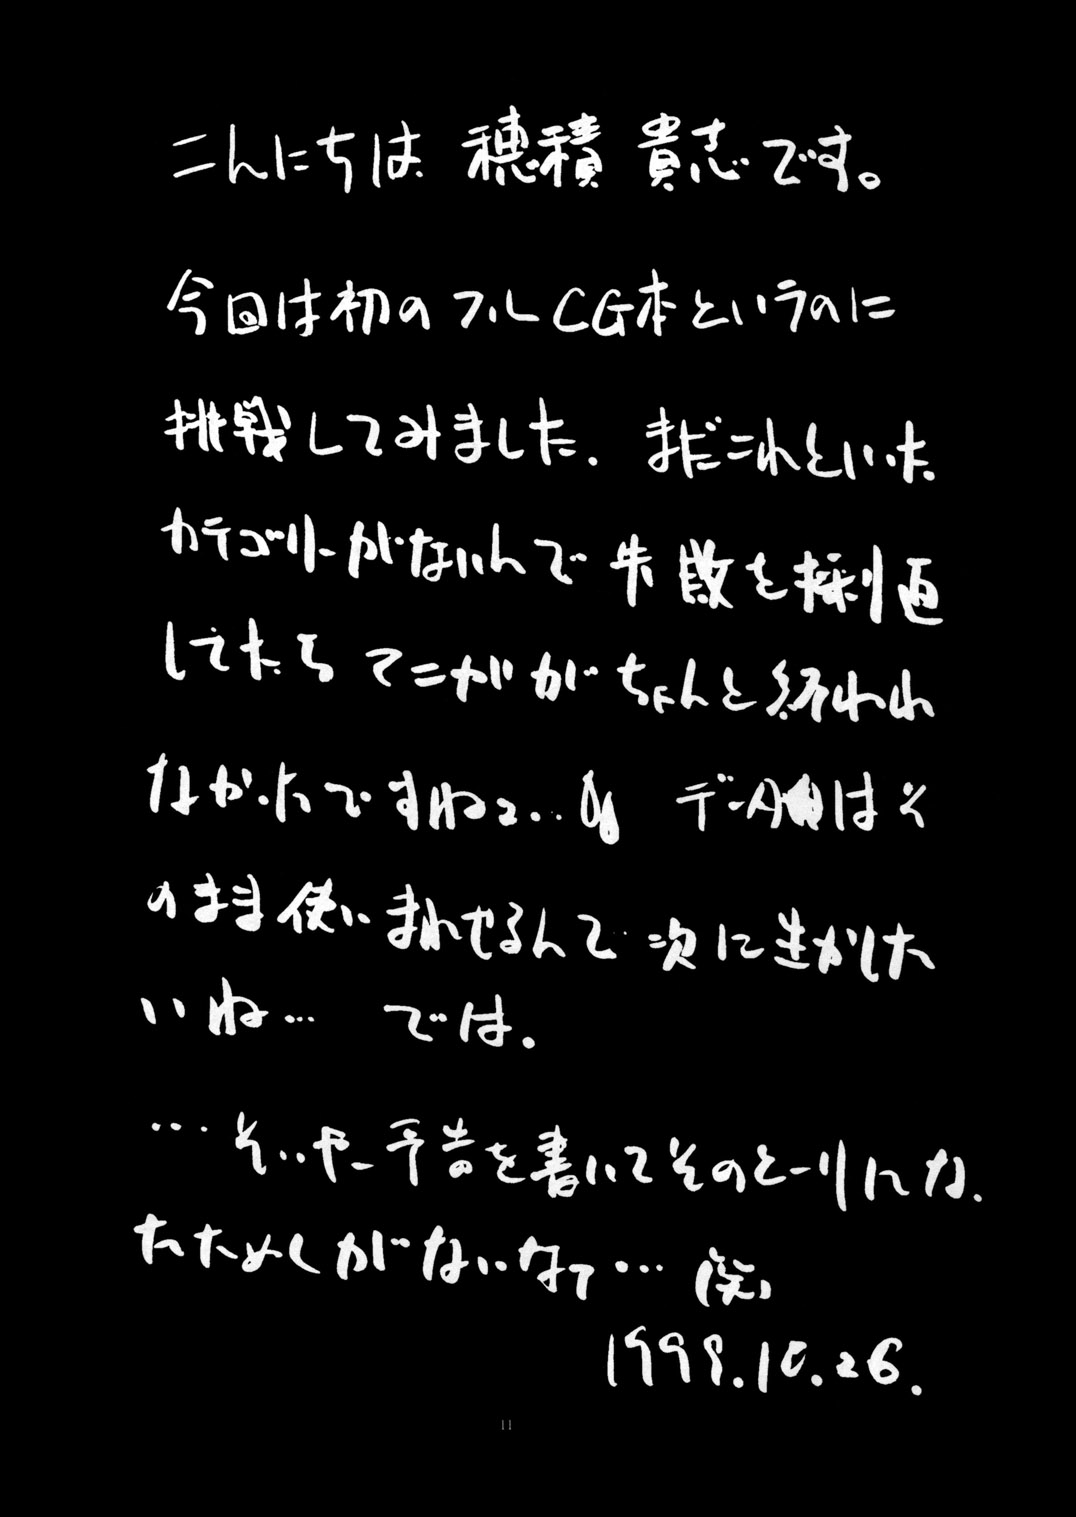 こんにちは 穂積 貴志です。
今回は初のフルCG本というのに
挑戦してみました. まだこれといった
カテゴリーがないんで 失敗を採り直
してたら てこがが ちょんと終われ
なかったですねェ... データは そ
のまま使いまわせるんで 次に生かした
いね… では.
… そいやー予告を書いてそのとーりにな.
たためしがないなァ… (笑)
1998.10.26.
11